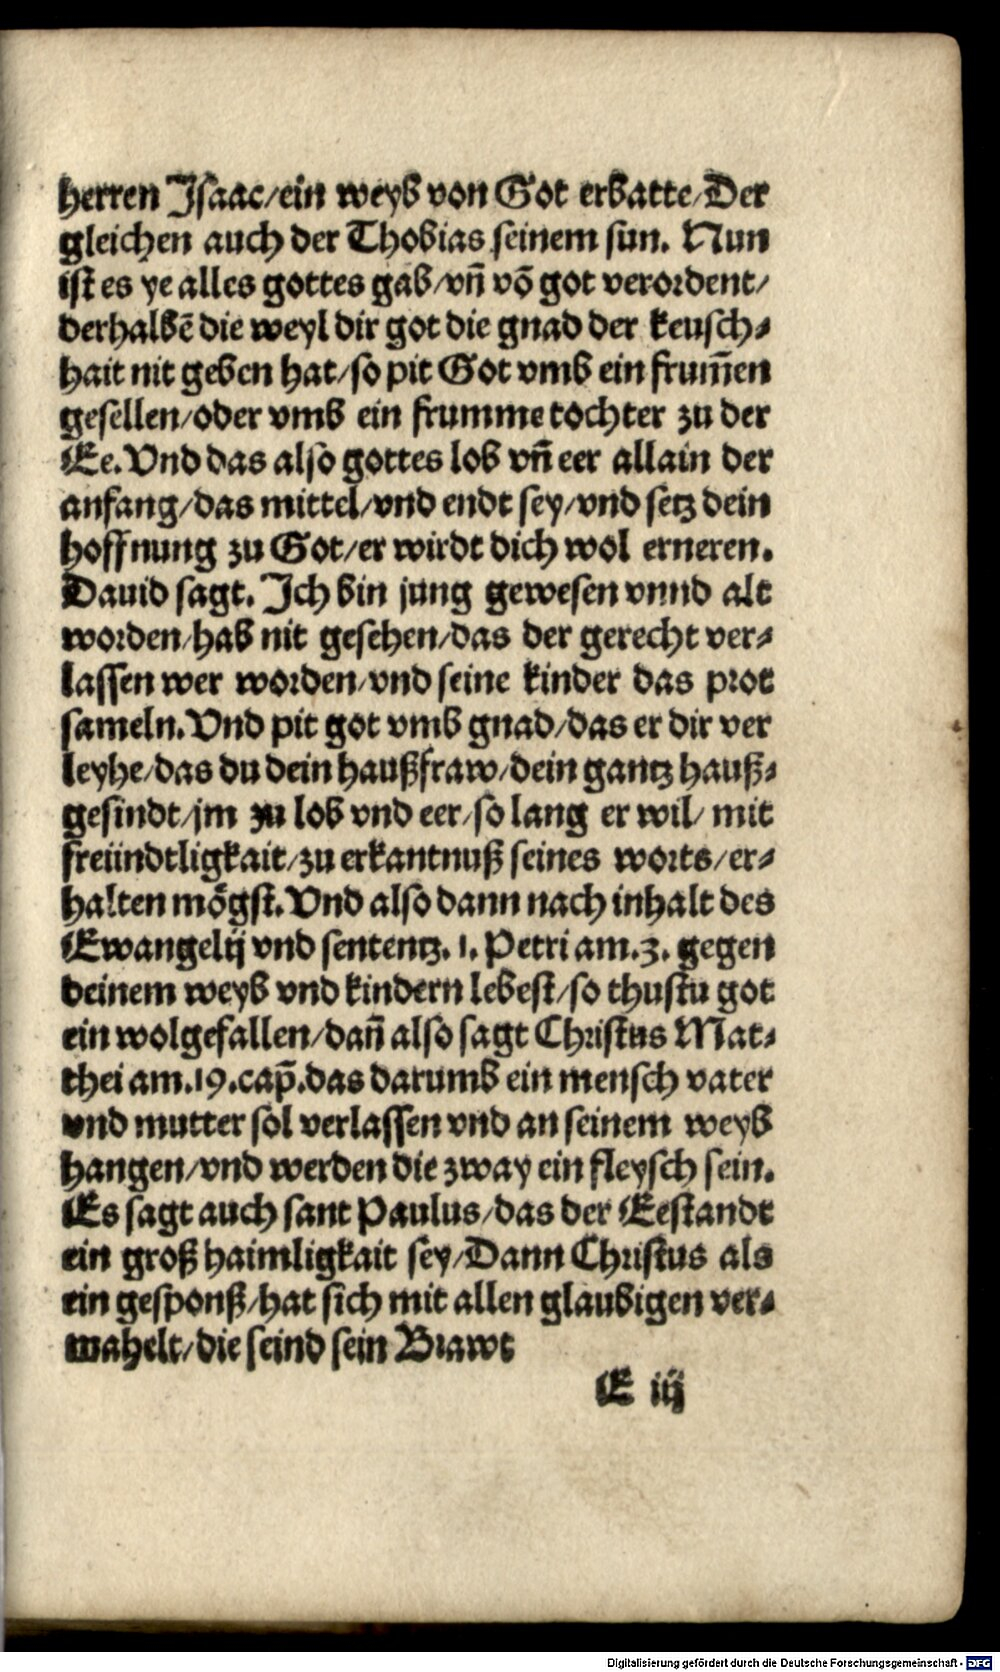 herren Isaac/ein weyb von Got erbatte/Der
gleichen auch der Thobias seinem sun. Nun
ist es ye alles gottes gab/vn̄ vō got verordent/
derhalbē die weyl dir got die gnad der keusch-
hait nit geben hat/so pit Got vmb ein frum̄en
gesellen/oder vmb ein frumme tochter zu der
Ee.Vnd das also gottes lob vn̄ eer allain der
anfang/das mittel/vnd endt sey/vnd setz dein
hoffnung zu Got/er wirdt dich wol erneren.
Dauid sagt. Ich bin jung gewesen vnnd alt
worden/hab nit gesehen/das der gerecht ver-
lassen wer worden/vnd seine kinder das prot
sameln.Vnd pit got vmb gnad/das er dir ver
leyhe/das du dein haußfraw/dein gantz hauß-
gesindt/jm zu lob vnd eer/so lang er wil/ mit
freündtligkait/zu erkantnuß seines worts/er-
halten mögst.Vnd also dann nach inhalt des
Ewangelij vnd sententz. 1. Petri am.3. gegen
deinem weyb vnd kindern lebest/so thustu got
ein wolgefallen/dan̄ also sagt Christus Mat-
thei am.19.cap̄.das darumb ein mensch vater
vnd mutter sol verlassen vnd an seinem weyb
hangen/vnd werden die zway ein fleysch sein.
Es sagt auch sant Paulus/das der Eestandt
ein groß haimligkait sey/Dann Christus als
ein gesponß/hat sich mit allen glaubigen ver-
mahelt/die seind sein Brawt
E iij
Digitalisierung gefördert durch die Deutsche Forschungsgemeinschaft - DFG